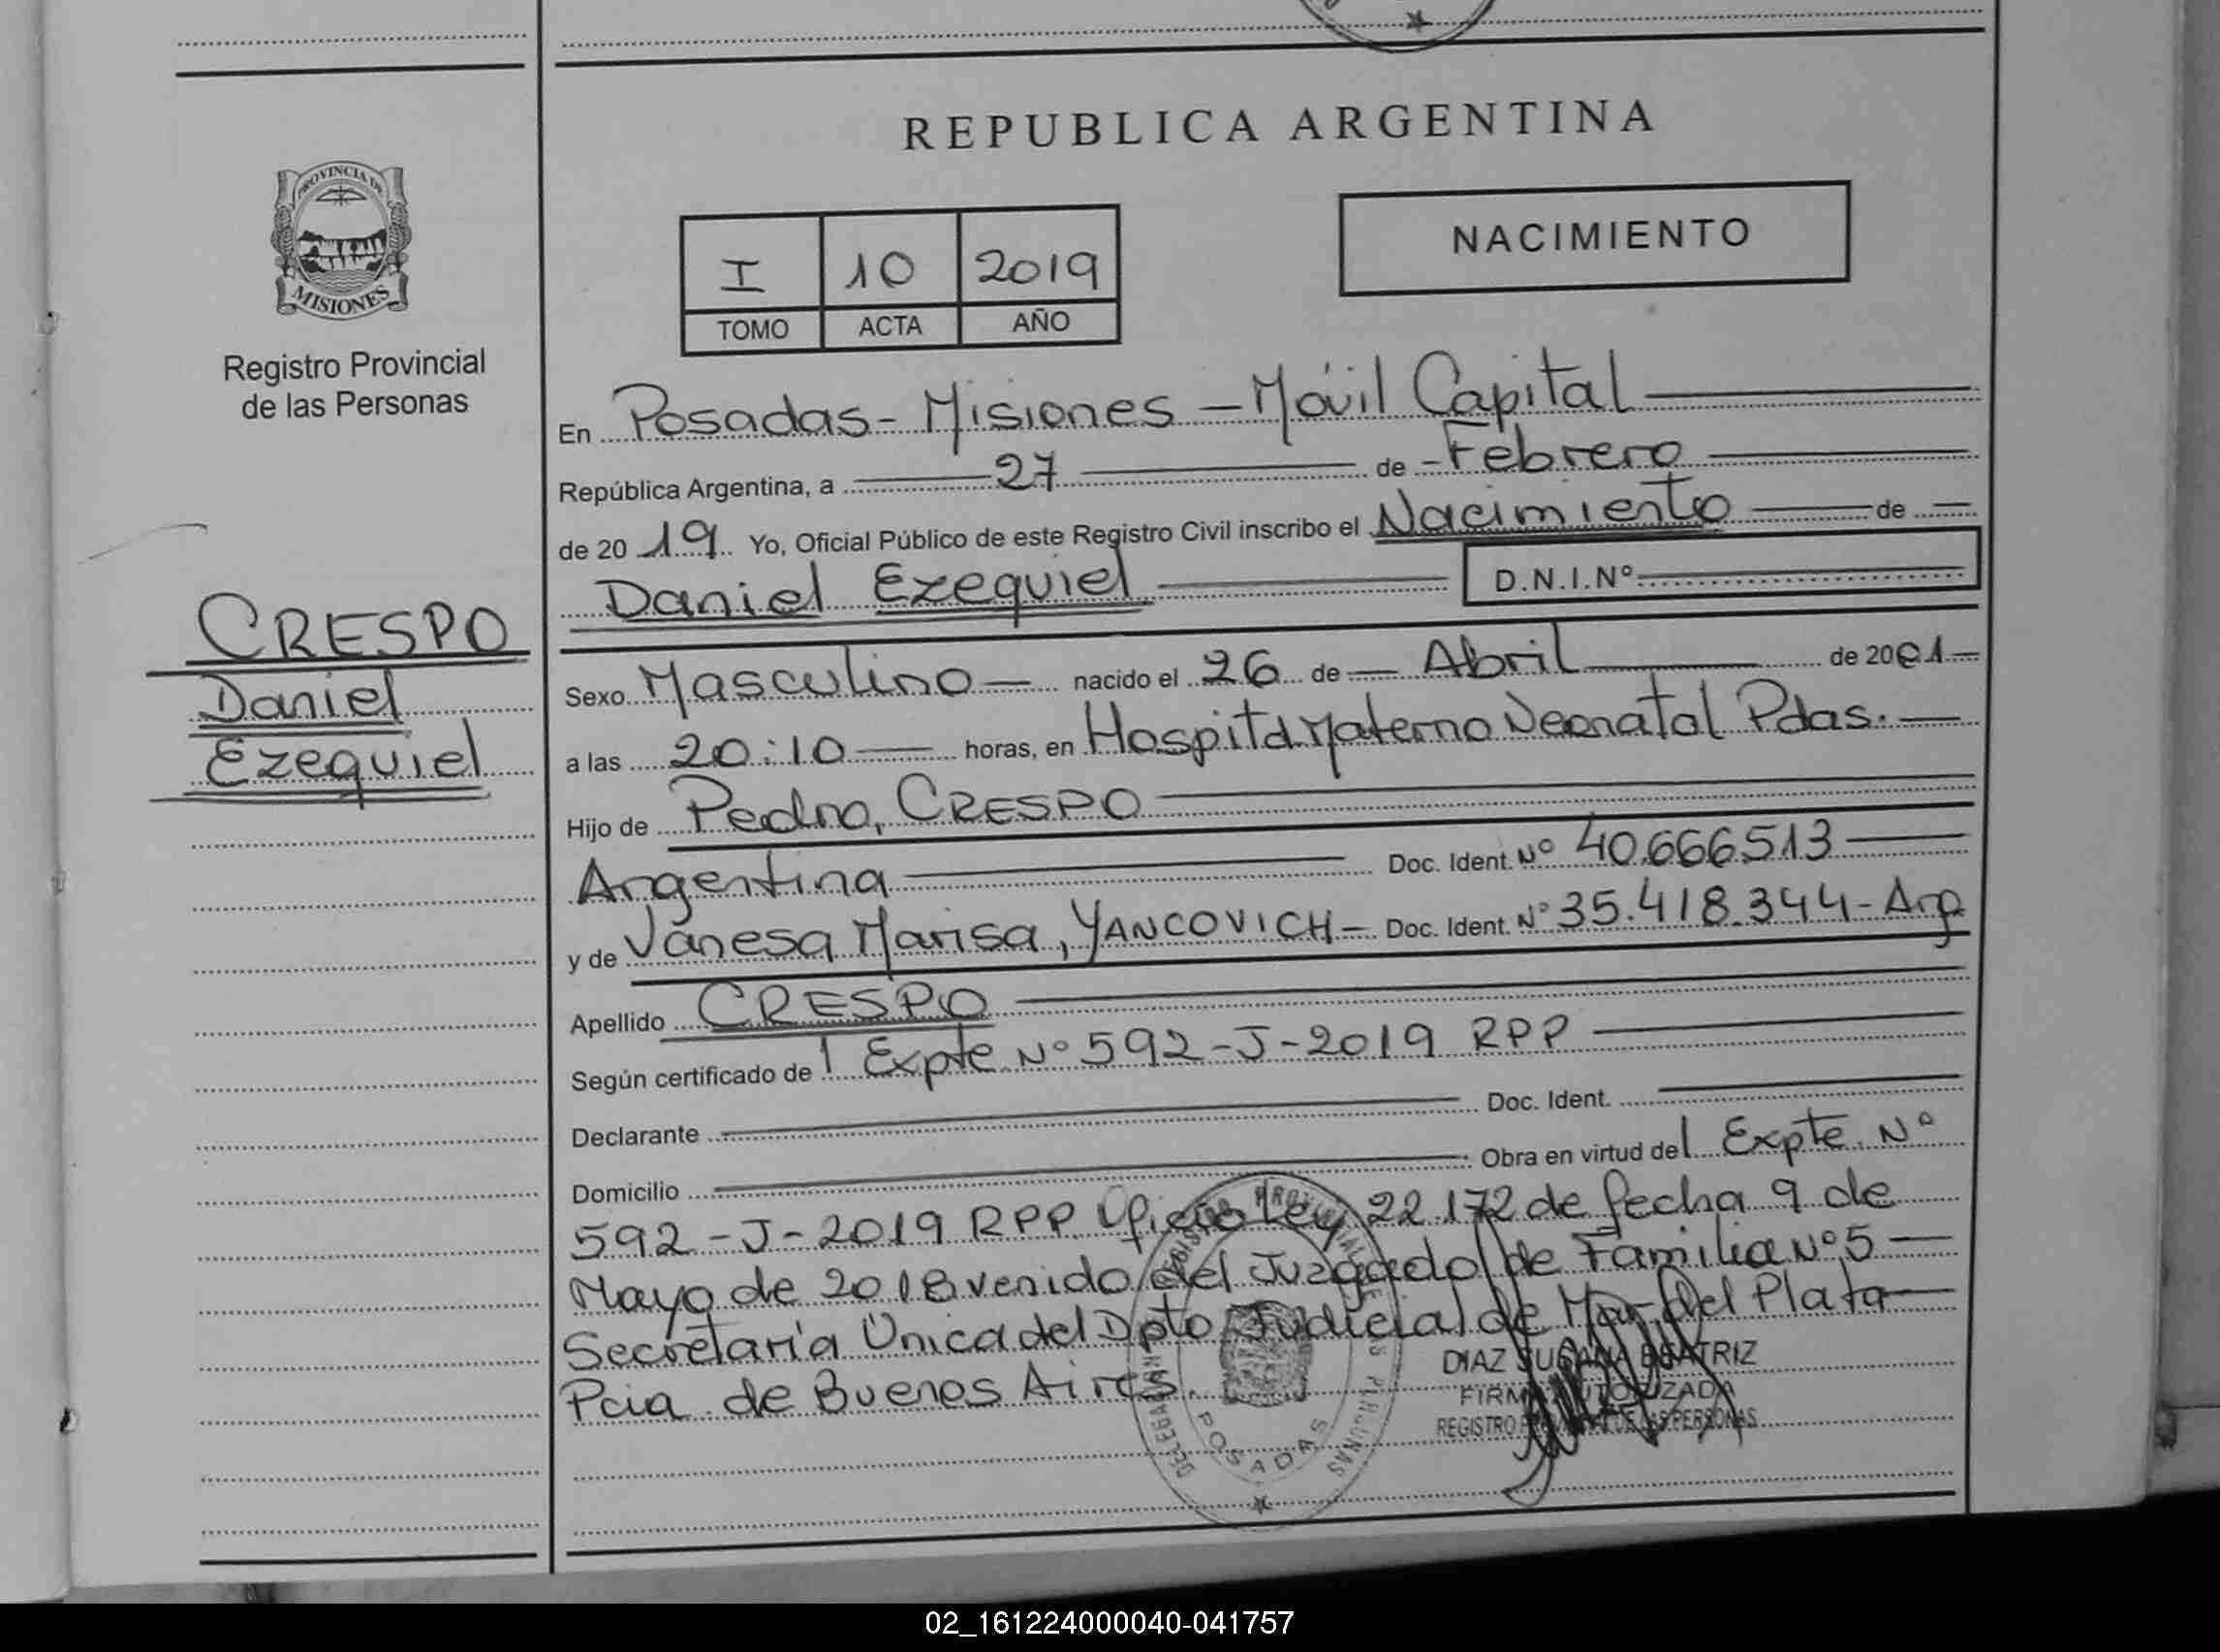 REPUBLICA ARGENTINA
PROVINCIA DE
MISIONES
Registro Provincial
de las Personas
I 10 2019
TOMO ACTA AÑO
NACIMIENTO
CRESPO
Daniel
Ezequiel
En Posadas - Misiones - Móvil Capital
República Argentina, a 27 de Febrero
de 2019 Yo, Oficial Público de este Registro Civil inscribo el Nacimiento de
Daniel Ezequiel D.N.I.Nº
Sexo Masculino nacido el 26 de Abril de 2001
a las 20:10 horas, en Hospital Materno Neonatal Pdas.
Hijo de Pedro, CRESPO
Argentina Doc. Ident. Nº 40.666.513
y de Vanesa Marisa, YANCOVICH - Doc. Ident. Nº 35.418.344 - Arg
Apellido CRESPO
Según certificado de l Expte Nº 592-J-2019 RPP
Declarante Doc. Ident.
Domicilio Obra en virtud del Expte. Nº
592-J-2019 RPP. Oficio Ley 22.172 de fecha 9 de
Mayo de 2018 venido del Juzgado de Familia Nº 5
Secretaría Única del Dpto Judicial de Mar del Plata
Pcia de Buenos Aires.
DIAZ SUSANA BEATRIZ
FIRMA AUTORIZADA
REGISTRO PROVINCIAL DE LAS PERSONAS
POSADAS
02_161224000040-041757